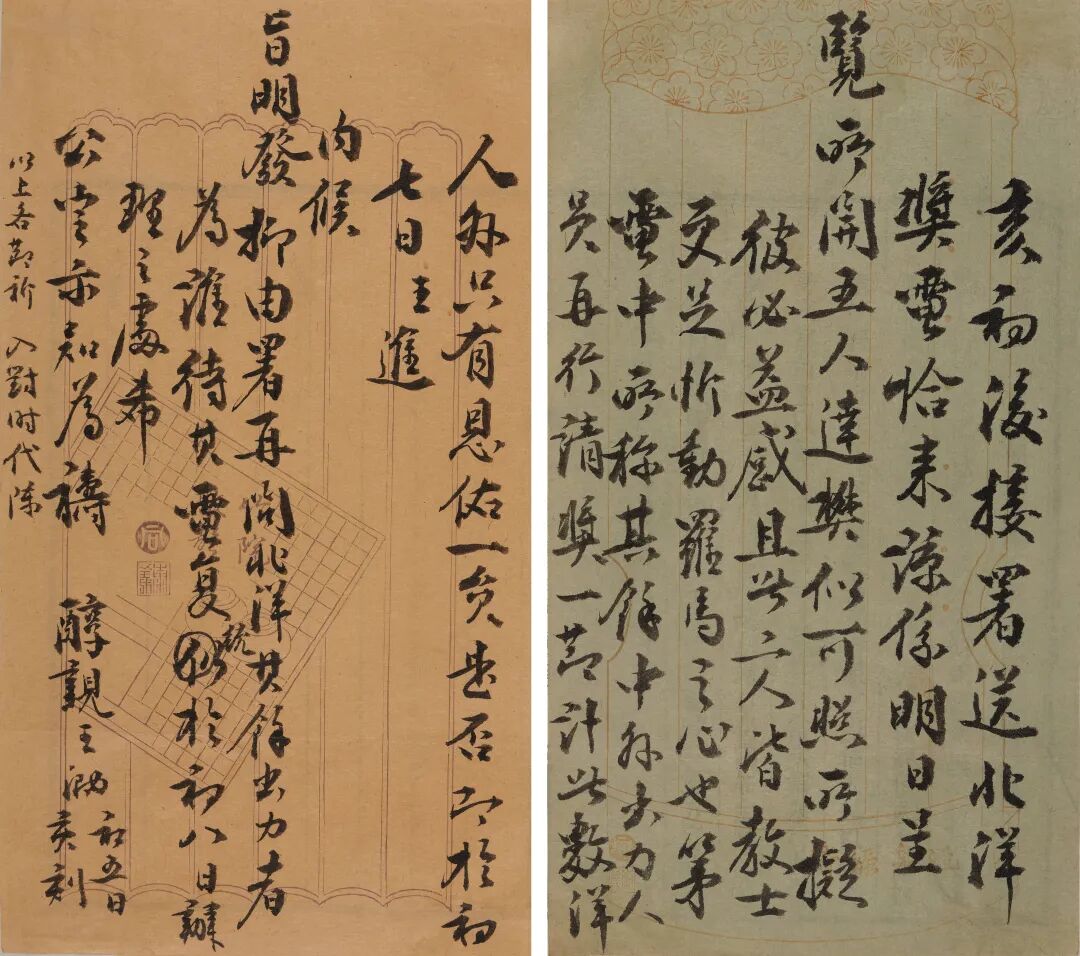 亥初後接署送北洋
獎電恰来諒係明日呈
覽所開五人達樊似可照所擬
彼必益感且此二人皆教士
更足忻動羅馬之心也第
電中所称其餘中外出力人
員再行請獎一節計此數洋
人外只有恩佑一員是否即於初
七日呈進
内候
旨明發抑由署再問北洋其餘出力者
為誰待其電复後於初八日辦
理之處希
公定示知為禱 醇親王泐 初五日
亥刻
以上各節祈 入對时代陳